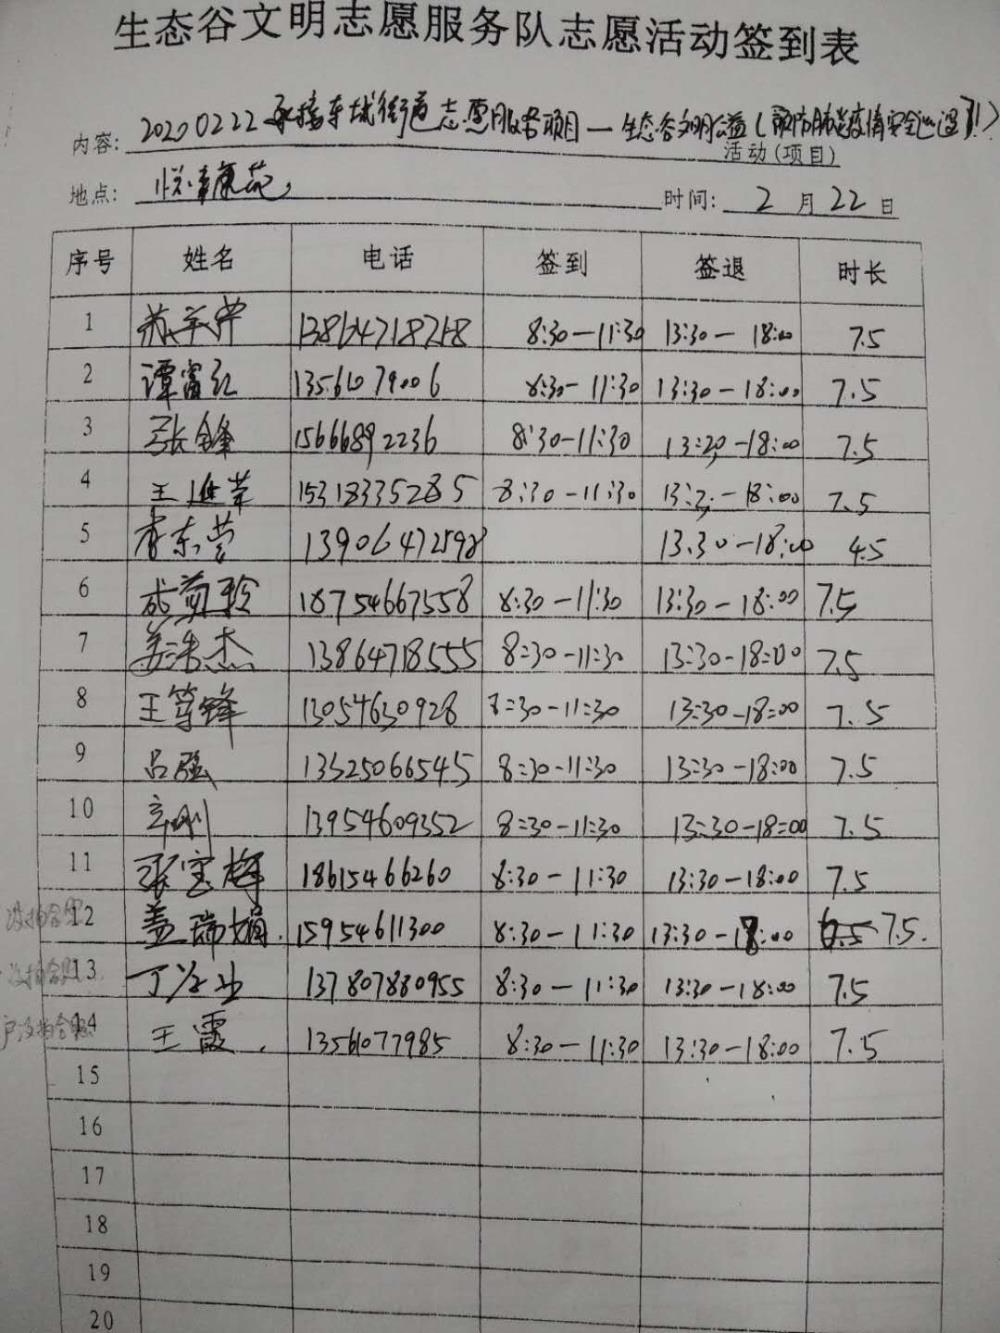 生态谷文明志愿服务队志愿活动签到表
内容: 20200222 承接东城街道志愿服务项目—生态谷文明公益(预防肺炎疫情安全巡逻)
活动(项目)
地点: 悦来康苑 时间: 2月22日
序号 姓名 电话 签到 签退 时长
1 13864718218 8:30—11:30 13:30— 18:00 7.5
2 谭富红 13561079006 8:30—11:30 13:30—18:00 7.5
3 张金锋 15666892236 8:30—11:30 13:30—18:00 7.5
4 王进荣 15318335285 8:30—11:30 13:30—18:00 7.5
5 李东营 13906472598 13:30—18:00 4.5
6 成菊玲 18754667558 8:30—11:30 13:30—18:00 7.5
7 姜浩杰 13864718555 8:30—11:30 13:30-18:00 7.5
8 王笃锋 13054630928 8:30—11:30 13:30—18:00 7.5
9 吕强 13325066545 8:30—11:30 13:30—18:00 7.5
10 13954609352 8:30—11:30 13:30—18:00 7.5
11 张宝梅 18615466260 8:30—11:30 13:30—18:00 7.5
没拍合照 12 盖瑞娟. 15954611300 8:30—11:30 13:30—18:00 7.5.
没拍合照 13 137807880955 8:30—11:30 13:30—18:00 7.5
没拍合照 14 王霞. 13561077985 8:30—11:30 13:30—18:00 7.5
15
16
17
18
19
20